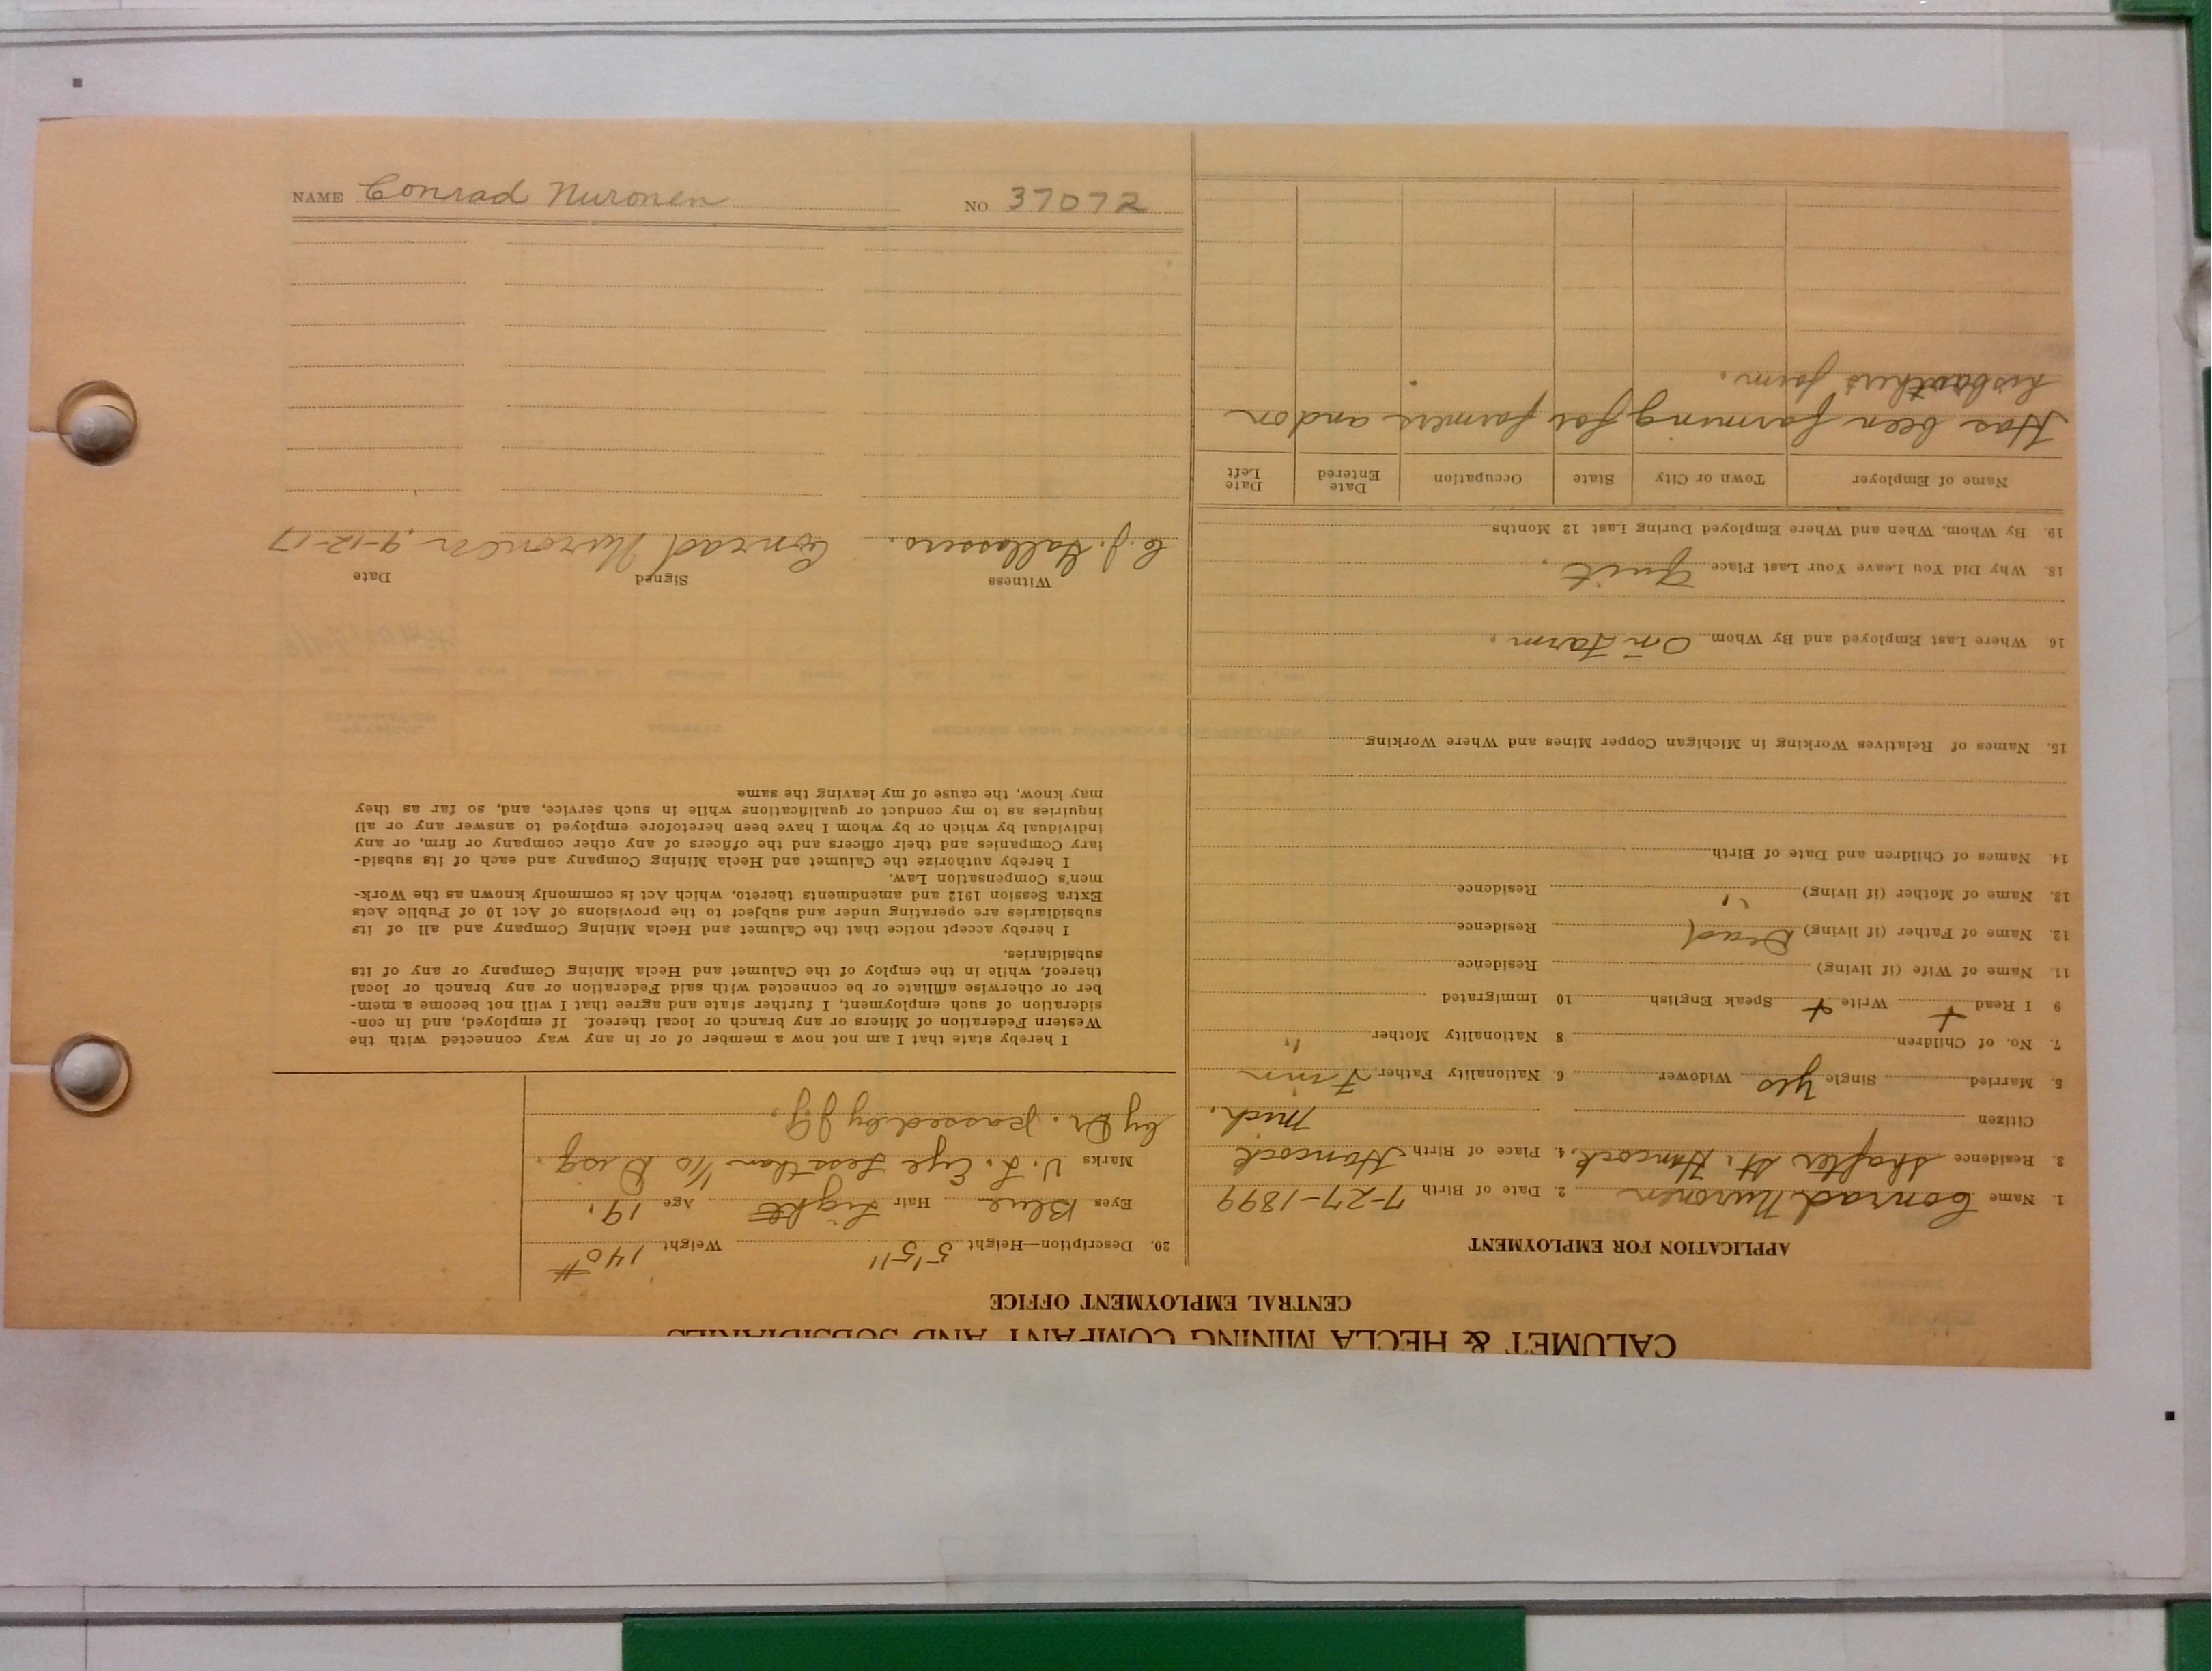 CALUMET & HECLA MINING COMPANY AND SUBSIDIARIES
CENTRAL EMPLOYMENT OFFICE
APPLICATION FOR EMPLOYMENT
1. Name Conrad Nuronen 2. Date of Birth 7-27-1899
3. Residence Shafter St. Hancock. 4. Place of Birth Hancock
Citizen Mich.
5. Married Single yes Widower 6 Nationality Father Finn
7. No. of Children 8 Nationality Mother "
9 I Read + Write + Speak English 10 Immigrated
11. Name of Wife (if living) Residence
12. Name of Father (if living) Dead Residence
13. Name of Mother (if living) " Residence
14. Names of Children and Date of Birth
15. Names of Relatives Working in Michigan Copper Mines and Where Working
16. Where Last Employed and By Whom On Farm.
18. Why Did You Leave Your Last Place Quit.
19. By Whom, When and Where Employed During Last 12 Months
Name of Employer Town or City State Occupation Date Entered Date Left
Has been farming for farmers and on
his brothers farm.
20. Description—Height 5'5" Weight 140#
Eyes Blue Hair Light Age 19.
Marks V. L. Eye Less than 1/10 Disq.
by Dr. passed by J.J.
I hereby state that I am not now a member of or in any way connected with the
Western Federation of Miners or any branch or local thereof. If employed, and in con-
sideration of such employment, I further state and agree that I will not become a mem-
ber or otherwise affiliate or be connected with said Federation or any branch or local
thereof, while in the employ of the Calumet and Hecla Mining Company or any of its
subsidiaries.
I hereby accept notice that the Calumet and Hecla Mining Company and all of its
subsidiaries are operating under and subject to the provisions of Act 10 of Public Acts
Extra Session 1912 and amendments thereto, which Act is commonly known as the Work-
men's Compensation Law.
I hereby authorize the Calumet and Hecla Mining Company and each of its subsid-
iary Companies and their officers and the officers of any other company or firm, or any
individual by which or by whom I have been heretofore employed to answer any or all
inquiries as to my conduct or qualifications while in such service, and, so far as they
may know, the cause of my leaving the same
Witness Signed Date
C. J. Conrad Nuronen 9-12-17
NAME Conrad Nuronen NO 37072